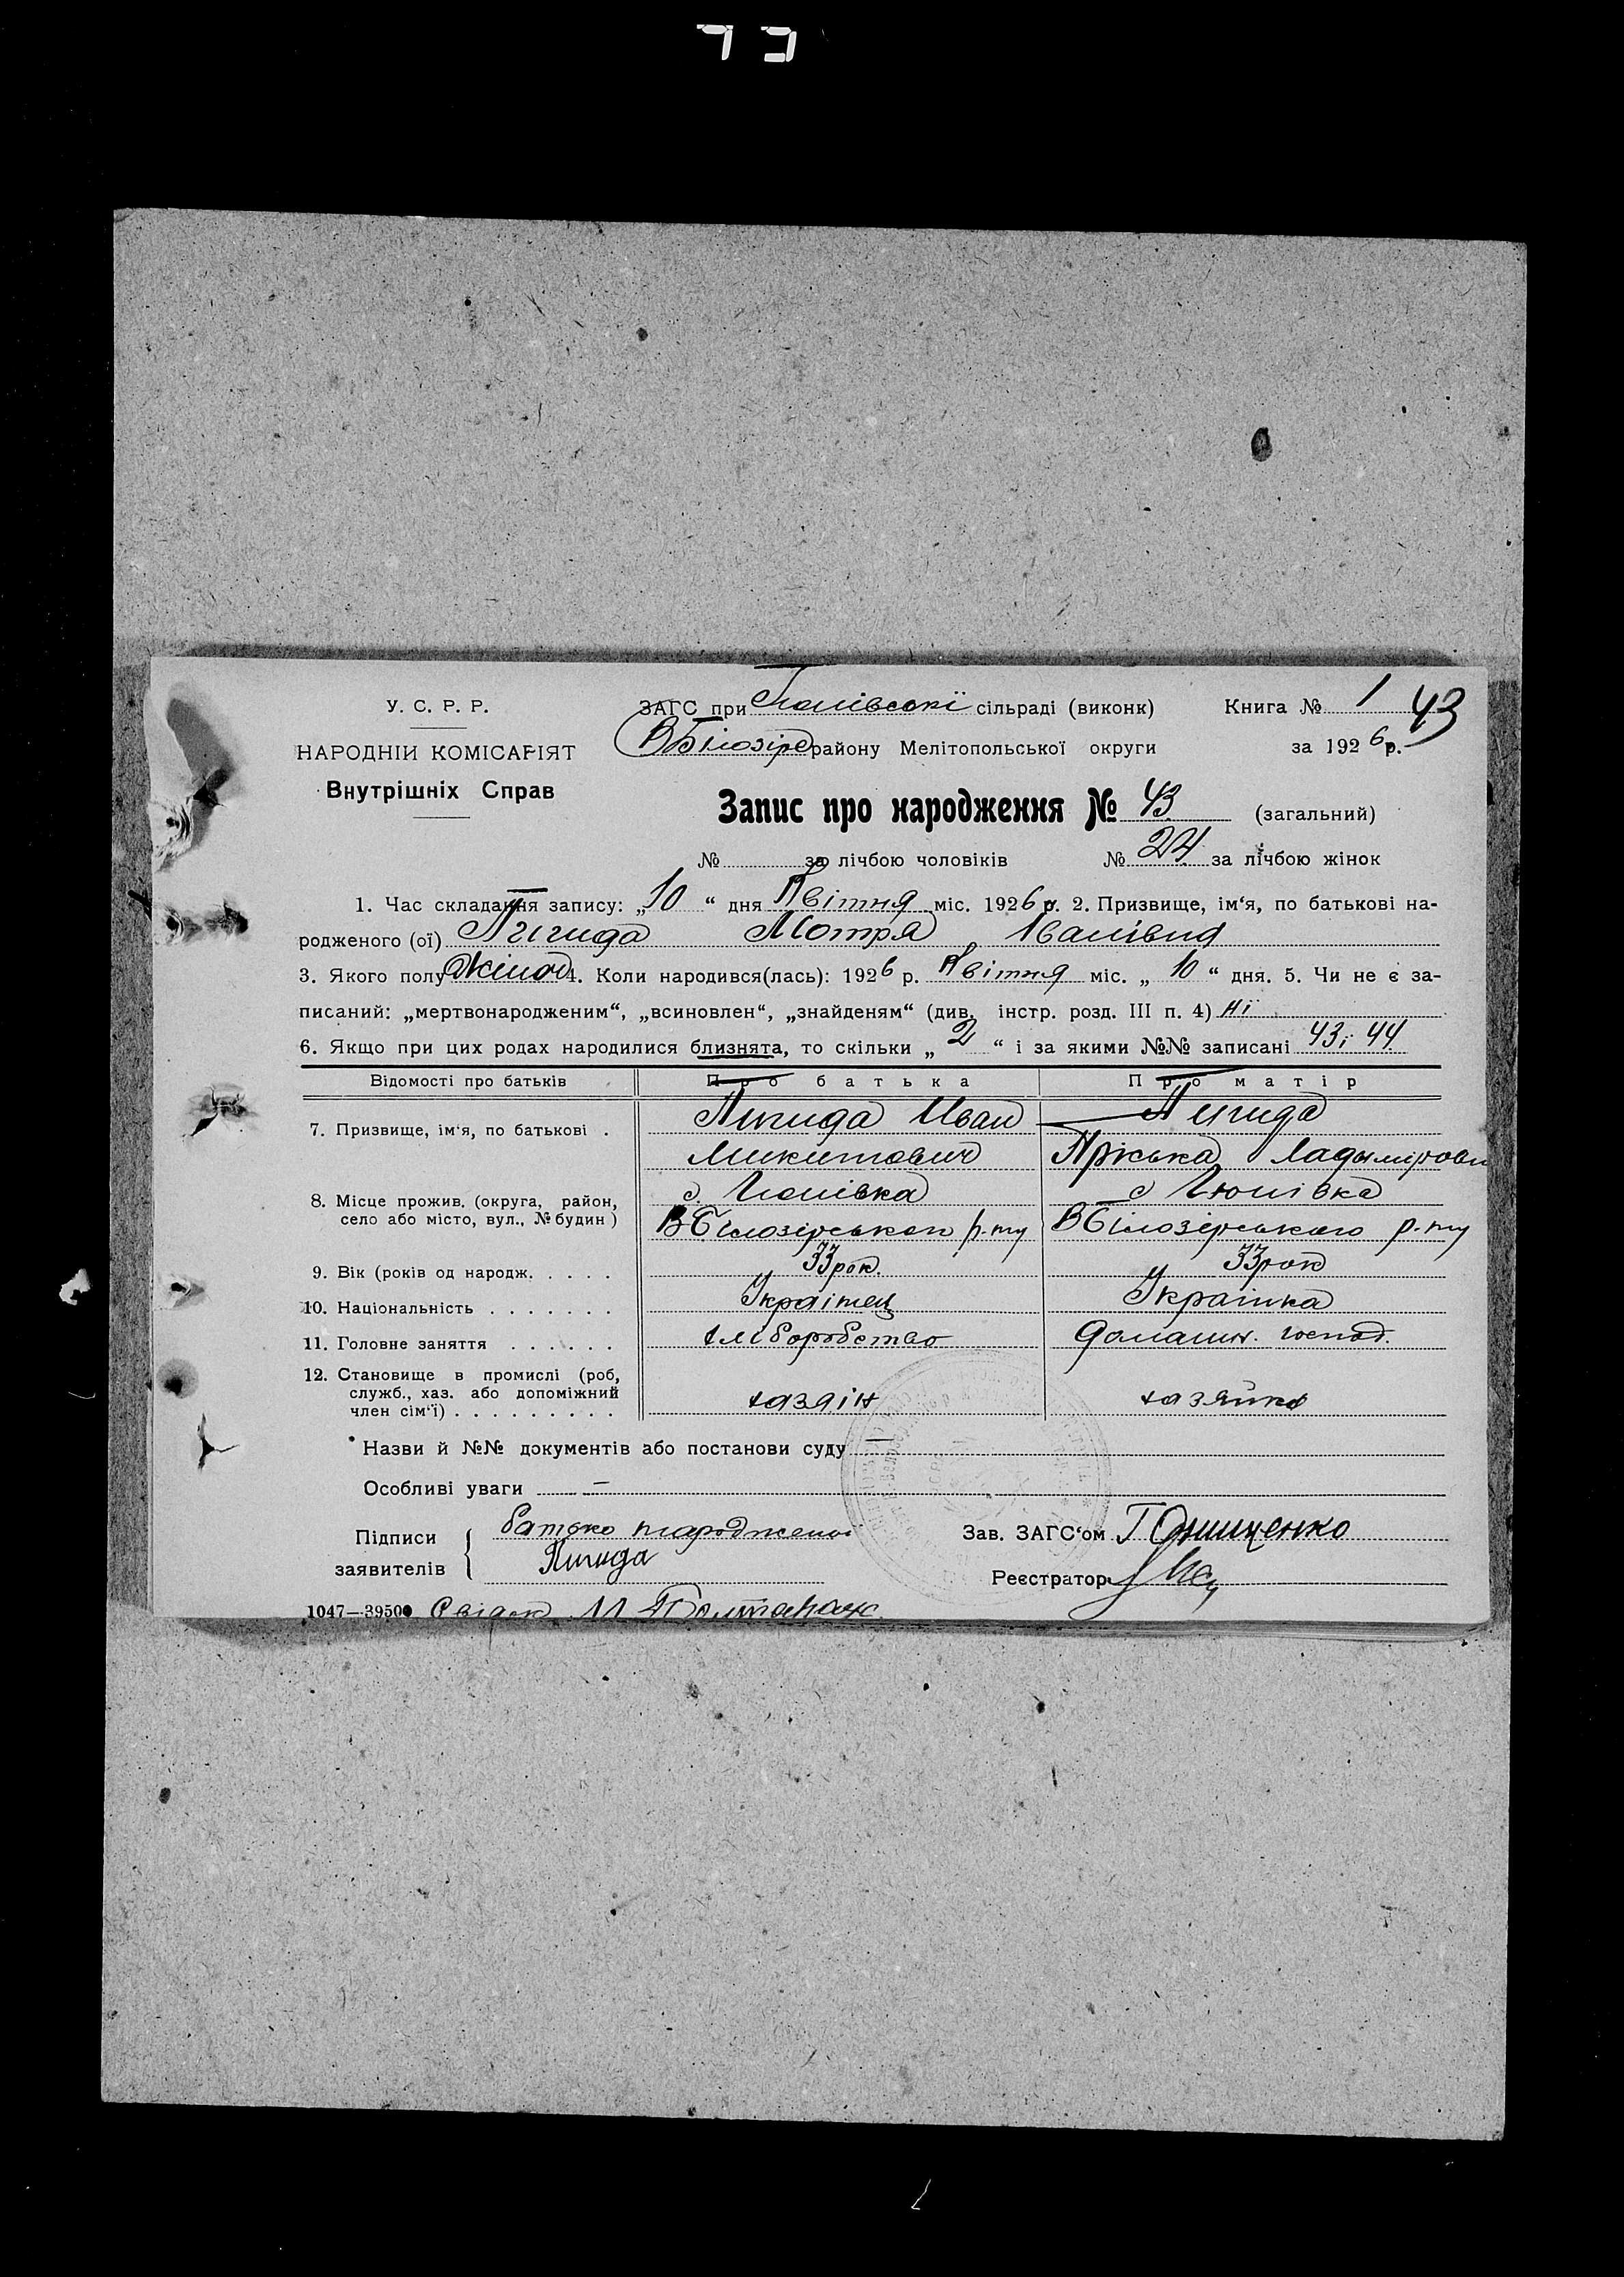 У. С. Р. Р.
НАРОДНІЙ КОМІСАРІЯТ
Внутрішніх Справ
ЗАГС при сільраді (виконк) Книга № 1 43
ВБілозірс району Мелітопольської округи за 1926 р.
Запис про народження № 43 (загальний)
№ за лічбою чоловіків № 24 за лічбою жінок
1. Час складання запису: „10“ дня Квітня міс. 1926 р. 2. Призвище, ім‘я, по батькові на-
родженого (ої) Мотря Іванівна
3. Якого полу жіноч 4. Коли народився(лась): 1926 р. Квітня міс. „10“ дня. 5. Чи не є за-
писаний: „мертвонародженим“, „всиновлен“, „знайденям“ (див. інстр. розд. III п. 4) ні
6. Якщо при цих родах народилися близнята, то скільки „2“ і за якими №№ записані 43 і 44
Відомості про батьків Про батька Про матір
7. Призвище, ім‘я, по батькові . Иван
Микитович Пріська
8. Місце прожив. (округа, район,
село або місто, вул., № будин)
с. Гюнівка с Гюнівка
ВБілозірськог р-ну ВБілозірського р-ну
9. Вік (років од народж. . . . . 33 рок. 33 рок
10. Національність . . . . . . . Українец Українка
11. Головне заняття . . . . . . хліборобство домашн. господ.
12. Становище в промислі (роб,
служб., хаз. або допоміжний
член сім‘ї) . . . . . . . . . хазяін хазяйка
Назви й №№ документів або постанови суду —
Особливі уваги —
Підписи
заявителів
батько народженої
Зав. ЗАГС‘ом Г Онищенко
Реєстратор
1047—39500 Свідок